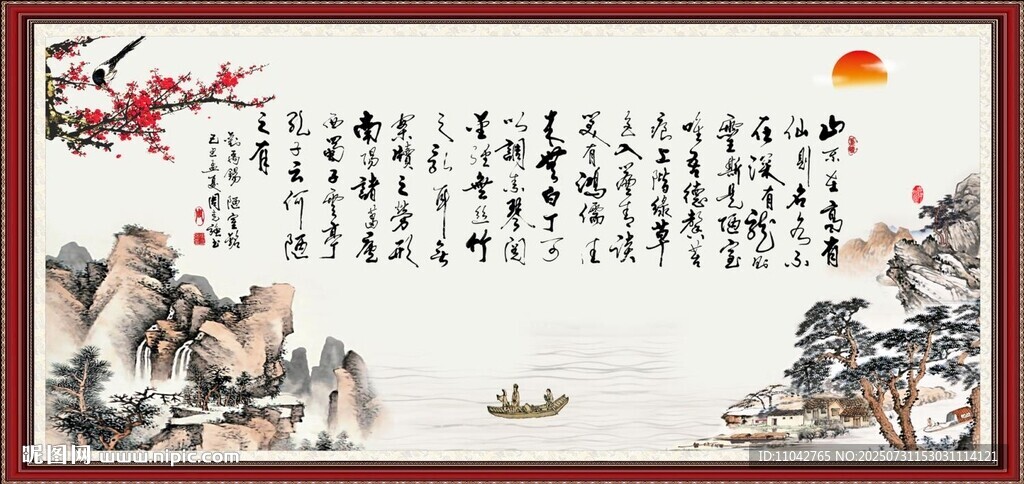 山不在高有
仙則名水不
在深有龍則
靈斯是陋室
唯吾德馨苔
痕上階綠草
色入簾青談
笑有鴻儒往
來無白丁可
以調素琴閱
金經無絲竹
之亂耳無
案牘之勞形
南陽諸葛廬
西蜀子雲亭
孔子云何陋
之有
劉禹錫陋室銘
己丑孟夏周
昵图网 www.nipic.com
ID:11042765 NO:20250731153031114121